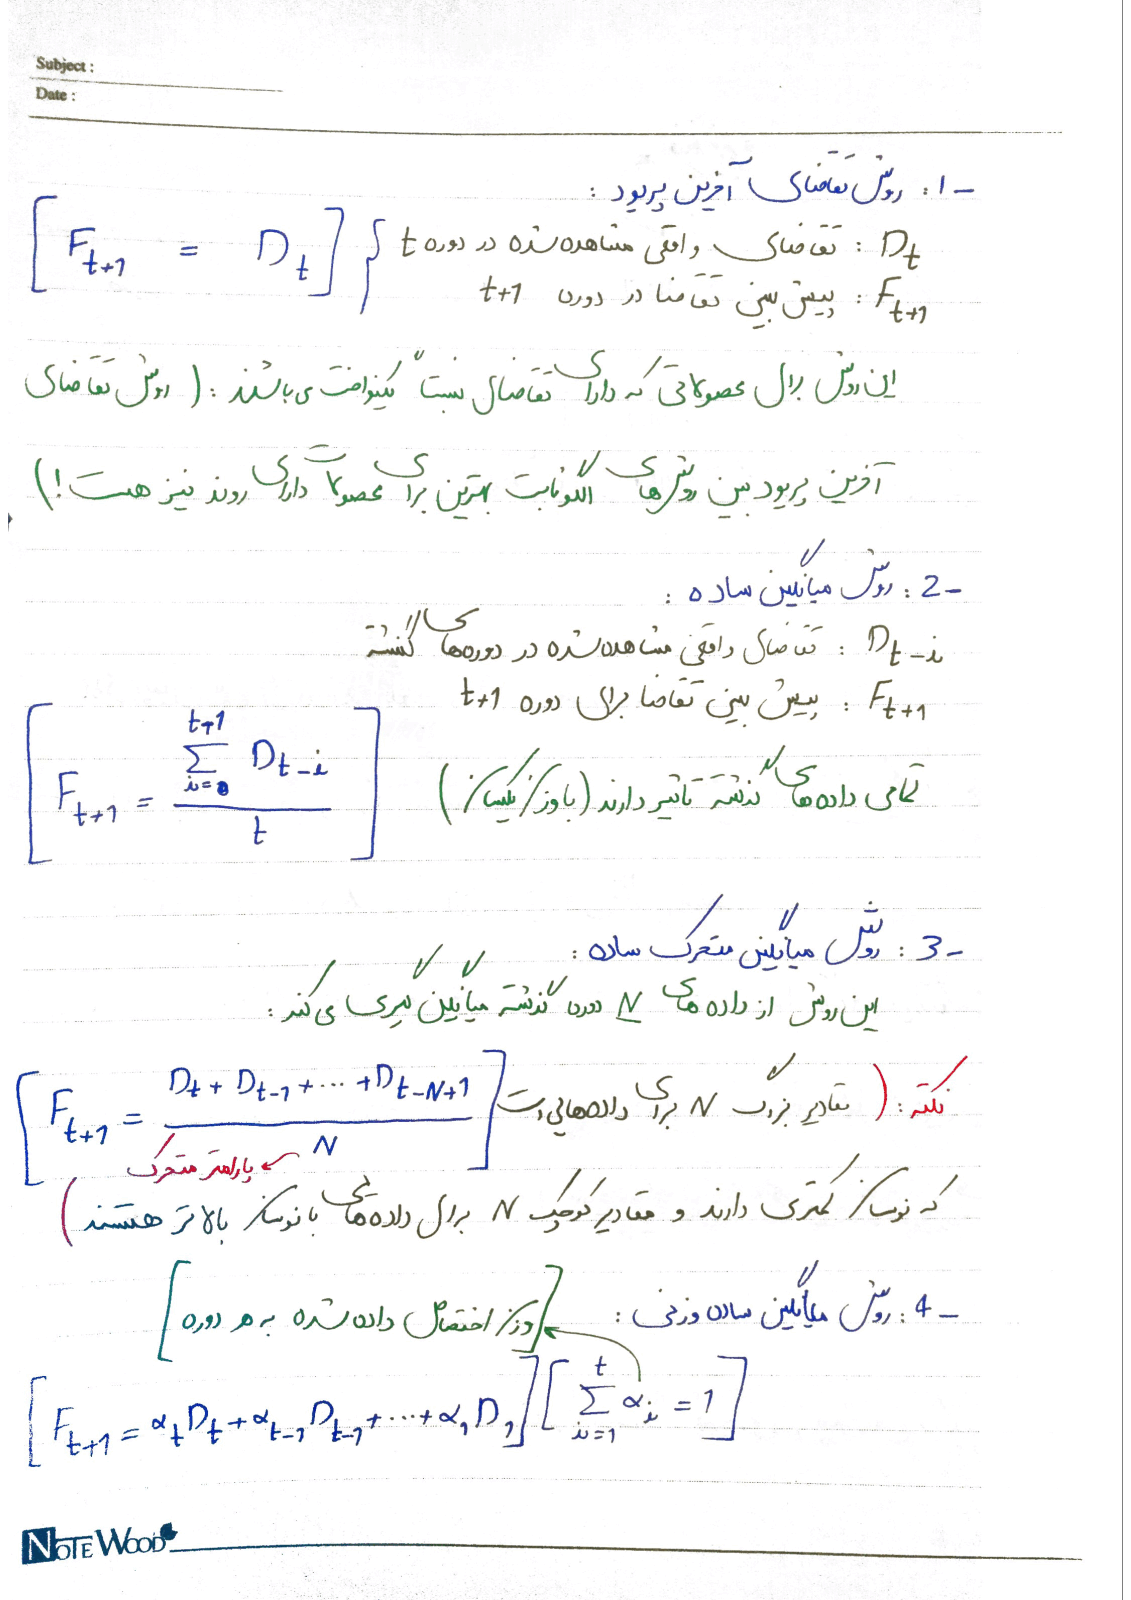 Subject :
Date :
1- : روش تقاضای آخرین پریود :
Dt : تقاضای واقعی مشاهده شده در دوره t
Ft+1 : پیش بینی تقاضا در دوره t+1
[Ft+1 = Dt]
این روش برای محصولاتی که دارای تقاضای نسبتاً یکنواخت می باشند : ( روش تقاضای
آخرین پریود بین روش های الگو ثابت بهترین برای محصولات دارای روند نیز هست ! )
2- : روش میانگین ساده :
Dt-i : تقاضای واقعی مشاهده شده در دوره های گذشته
Ft+1 : پیش بینی تقاضا برای دوره t+1
[Ft+1 = Σ(i=0)^(t-1) Dt-i / t]
تمامی داده های گذشته تأثیر دارند ( با وزن یکسان )
3- : روش میانگین متحرک ساده :
این روش از داده های N دوره گذشته میانگین گیری می کند :
[Ft+1 = (Dt + Dt-1 + ... + Dt-N+1) / N]
پارامتر متحرک
نکته : ( مقادیر بزرگ N برای داده هایی است
که نوسان کمتری دارند و مقادیر کوچک N برای داده هایی با نوسان بالاتر هستند )
4- : روش میانگین ساده وزنی :
[وزن اختصاص داده شده به هر دوره]
[Ft+1 = αt Dt + αt-1 Dt-1 + ... + α1 D1] [Σ(i=1)^t αi = 1]
NOTE WOOD